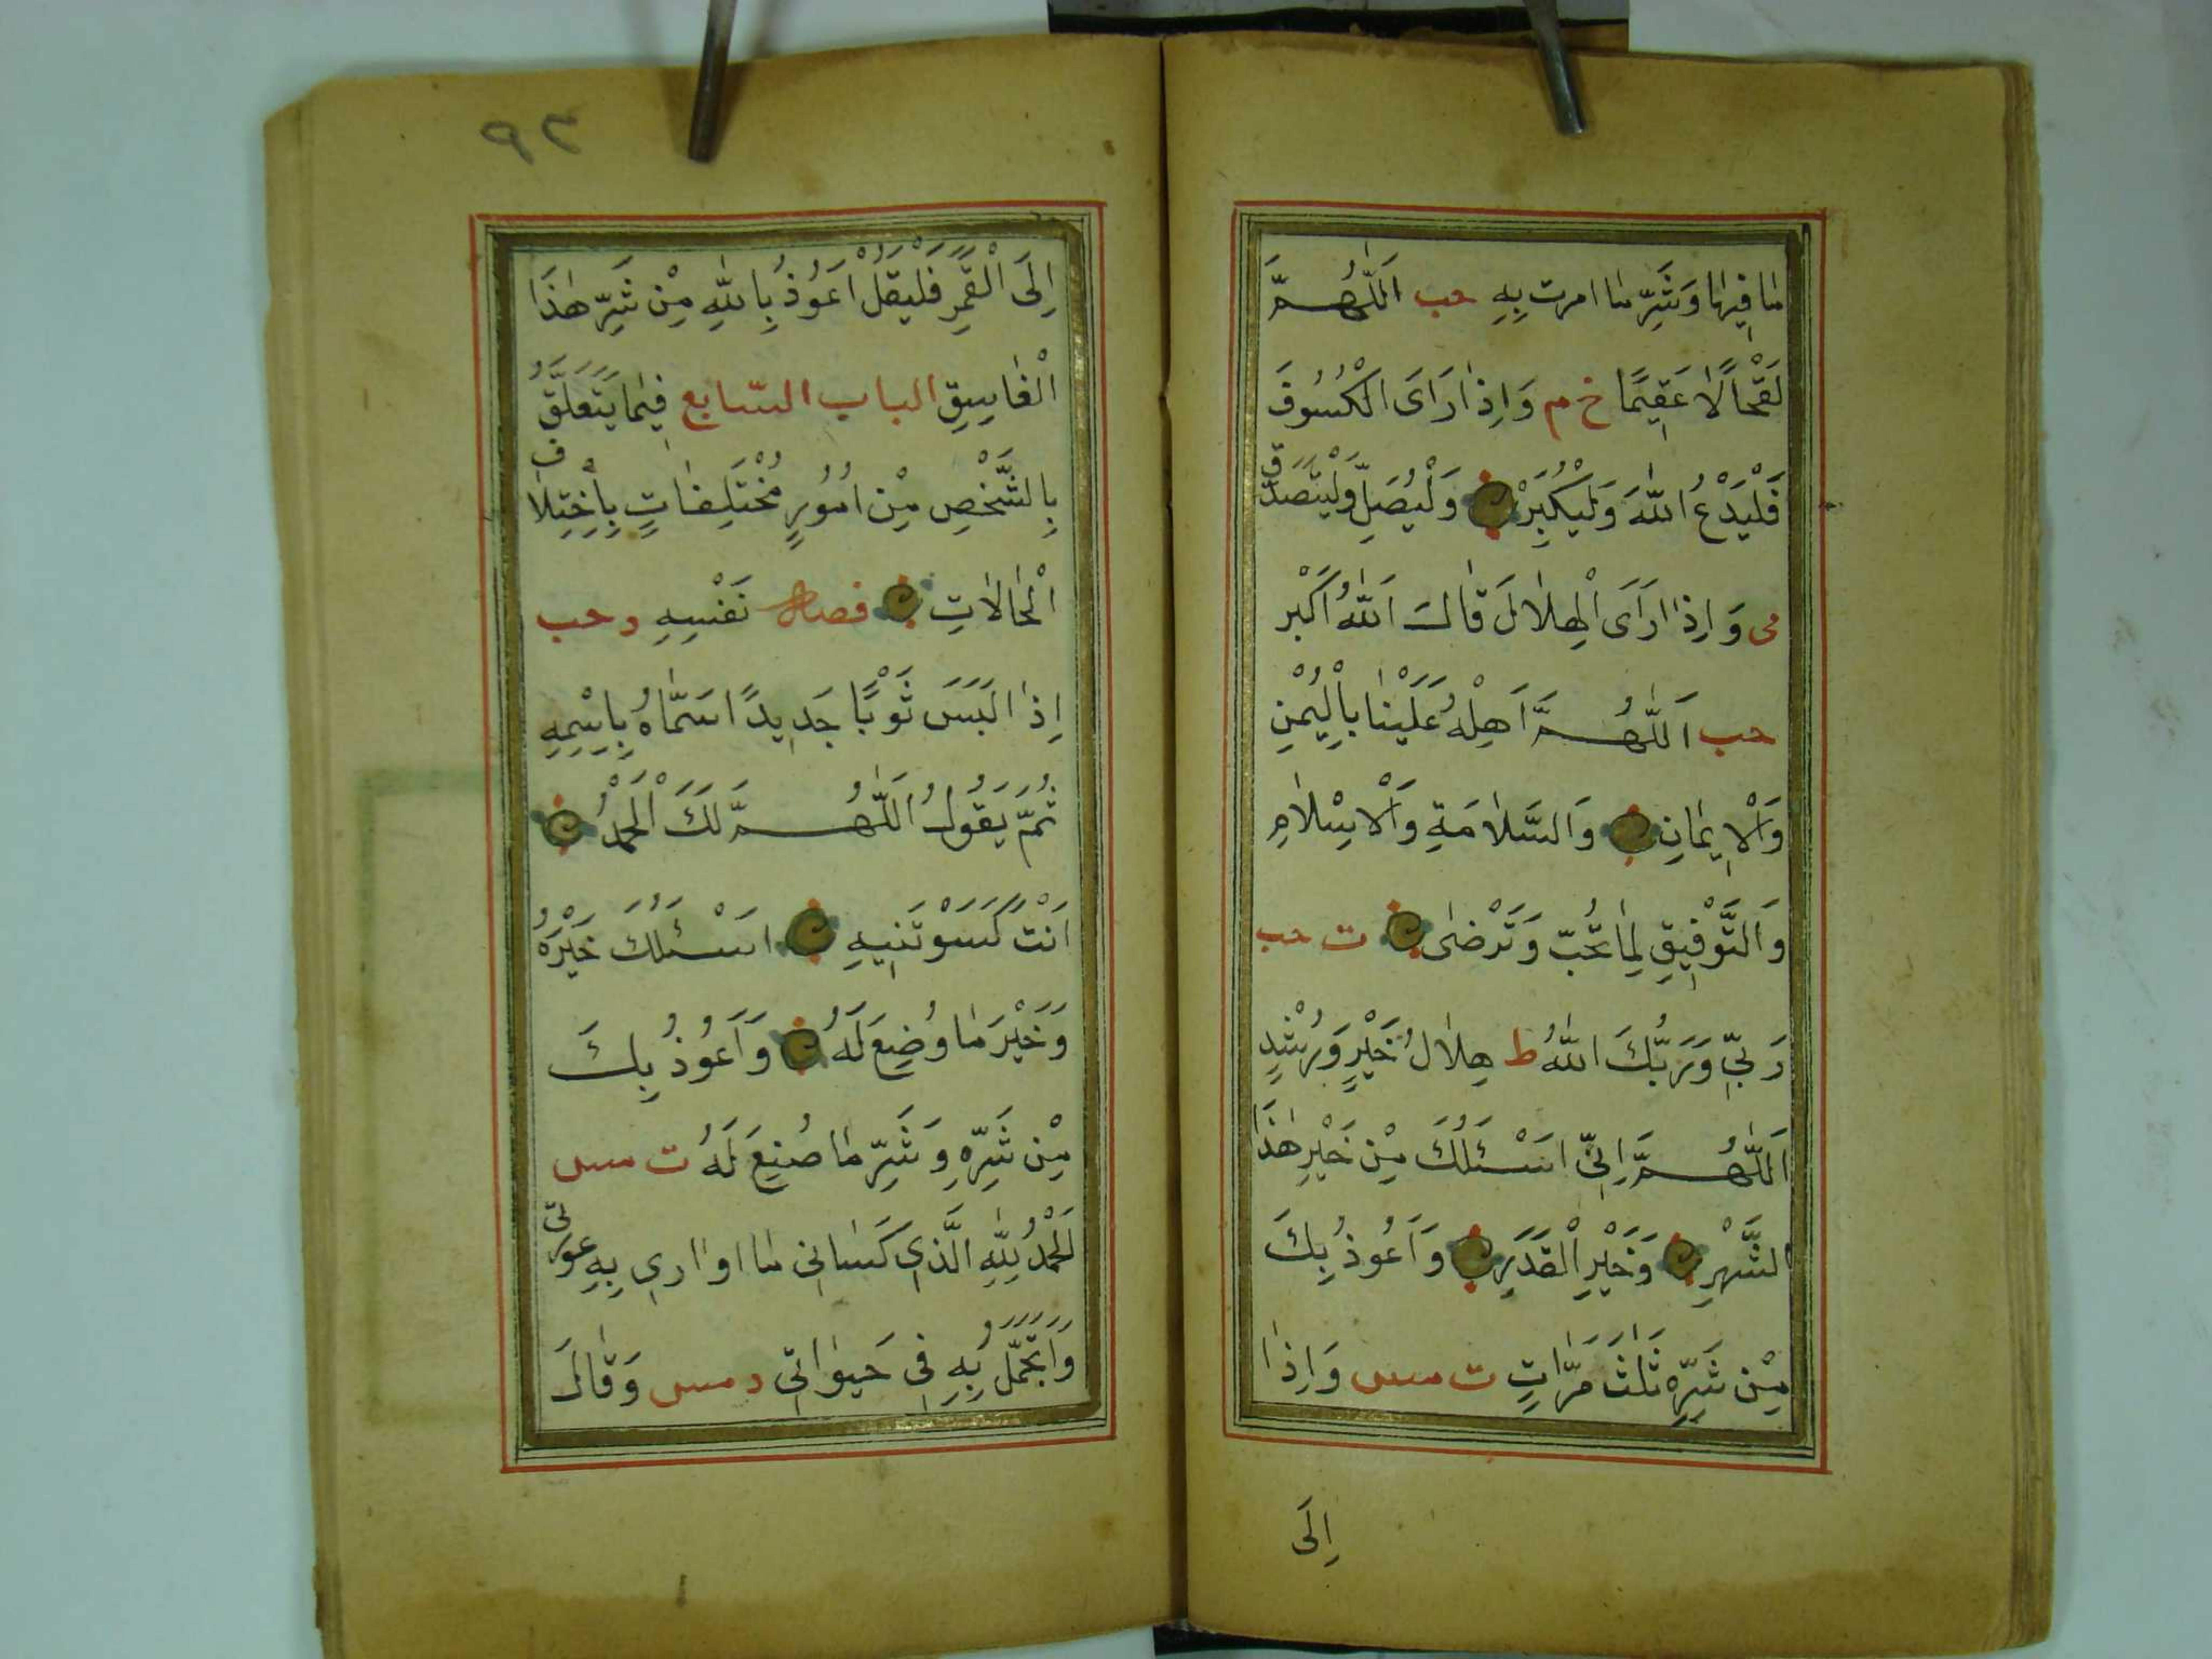 مَا فِيهَا وَشَرِّ مَا امرت بِهِ حب اَللّٰهُمَّ
لَقْحًا لَا عَقِيمًا خ م وَاِذَا رَاَى الْكُسُوفَ
فَلْيَدْعُ اللّٰهَ وَلْيُكَبِّرْ وَلْيُصَلِّ وَلْيَتَصَدَّقْ
می وَاِذَا رَاَى الْهِلَالَ قَالَ اَللّٰهُ اَكْبَر
حب اَللّٰهُمَّ اَهِلْهُ عَلَيْنَا بِالْيُمْنِ
وَالْاِيمَانِ وَالسَّلَامَةِ وَالْاِسْلَامِ
وَالتَّوْفِيقِ لِمَا تُحِبّ وَتَرْضٰى ت حب
رَبِّي وَرَبُّكَ اللّٰهُ ط هِلَالُ خَيْرٍ وَرُشْدٍ
اَللّٰهُمَّ اِنِّي اَسْـَٔلُكَ مِنْ خَيْرِ هٰذَا
الشَّهْرِ وَخَيْرِ الْقَدَرِ وَاَعُوذُ بِكَ
مِنْ شَرِّهِ ثَلٰثَ مَرَّاتٍ ت مس وَاِذَا
اِلَى
٩٣
اِلَى الْقَمَرِ فَلْيَقُلْ اَعُوذُ بِاللّٰهِ مِنْ شَرِّ هٰذَا
الْغَاسِقِ الباب السّابع فِيمَا يَتَعَلَّقُ
بِالشَّخْصِ مِنْ اُمُورٍ مُخْتَلِفَاتٍ بِاخْتِلَاف
الْحَالَاتِ فصل نَفْسِهِ د حب
اِذَا لَبَسَ ثَوْبًا جَدِيدًا سَمَّاهُ بِاسْمِهِ
ثُمَّ يَقُولُ اَللّٰهُمَّ لَكَ الْحَمْدُ
اَنْتَ كَسَوْتَنِيهِ اَسْـَٔلُكَ خَيْرَهُ
وَخَيْرَ مَا وُضِعَ لَهُ وَاَعُوذُ بِكَ
مِنْ شَرِّهِ وَشَرِّ مَا صُنِعَ لَهُ ت مس
اَلْحَمْدُ لِلّٰهِ الَّذِي كَسَانِي مَا اواري بِهِ عورتي
وَاَتَجَمَّلُ بِهِ فِي حَيٰواتِي د مس وَقَالَ